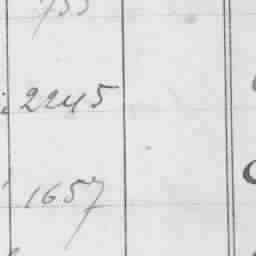 2245
1657